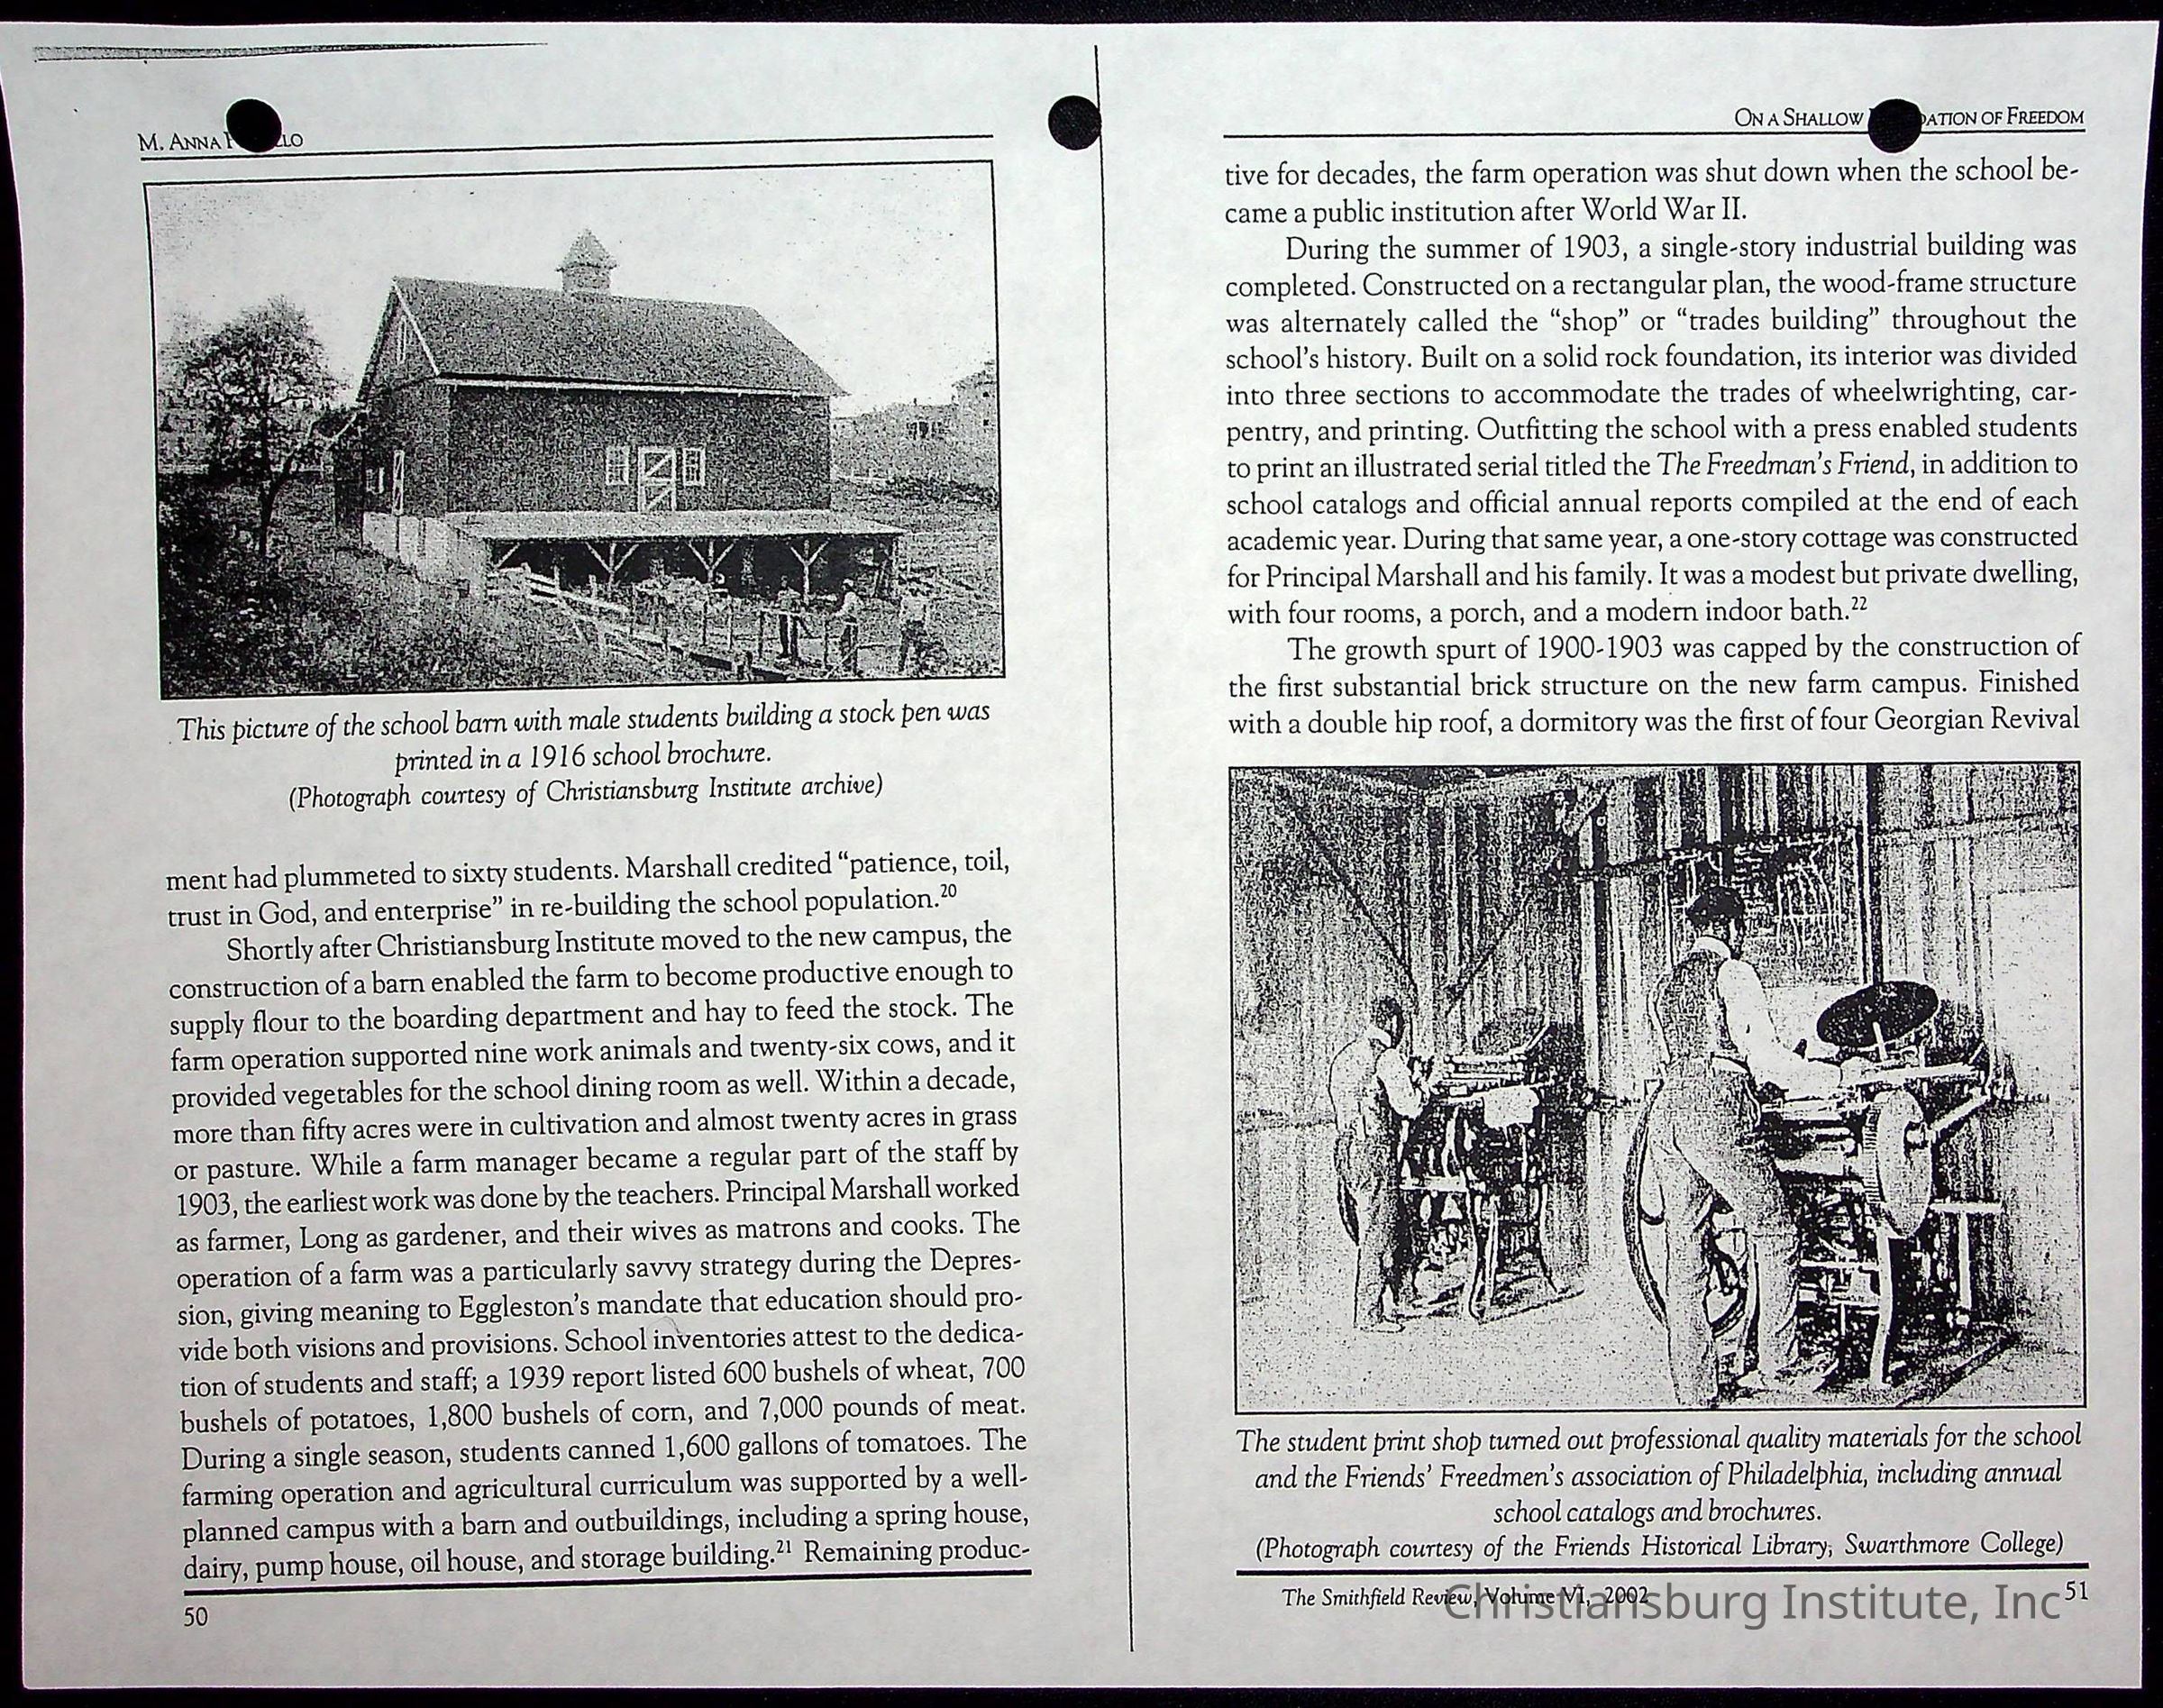 M. Anna
This picture of the school barn with male students building a stock pen was
printed in a 1916 school brochure.
(Photograph courtesy of Christiansburg Institute archive)
ment had plummeted to sixty students. Marshall credited “patience, toil,
trust in God, and enterprise” in re-building the school population.20
Shortly after Christiansburg Institute moved to the new campus, the
construction of a barn enabled the farm to become productive enough to
supply flour to the boarding department and hay to feed the stock. The
farm operation supported nine work animals and twenty-six cows, and it
provided vegetables for the school dining room as well. Within a decade,
more than fifty acres were in cultivation and almost twenty acres in grass
or pasture. While a farm manager became a regular part of the staff by
1903, the earliest work was done by the teachers. Principal Marshall worked
as farmer, Long as gardener, and their wives as matrons and cooks. The
operation of a farm was a particularly savvy strategy during the Depres-
sion, giving meaning to Eggleston’s mandate that education should pro-
vide both visions and provisions. School inventories attest to the dedica-
tion of students and staff; a 1939 report listed 600 bushels of wheat, 700
bushels of potatoes, 1,800 bushels of corn, and 7,000 pounds of meat.
During a single season, students canned 1,600 gallons of tomatoes. The
farming operation and agricultural curriculum was supported by a well-
planned campus with a barn and outbuildings, including a spring house,
dairy, pump house, oil house, and storage building.21 Remaining produc-
50
On a Shallow ation of Freedom
tive for decades, the farm operation was shut down when the school be-
came a public institution after World War II.
During the summer of 1903, a single-story industrial building was
completed. Constructed on a rectangular plan, the wood-frame structure
was alternately called the “shop” or “trades building” throughout the
school’s history. Built on a solid rock foundation, its interior was divided
into three sections to accommodate the trades of wheelwrighting, car-
pentry, and printing. Outfitting the school with a press enabled students
to print an illustrated serial titled the The Freedman’s Friend, in addition to
school catalogs and official annual reports compiled at the end of each
academic year. During that same year, a one-story cottage was constructed
for Principal Marshall and his family. It was a modest but private dwelling,
with four rooms, a porch, and a modern indoor bath.22
The growth spurt of 1900-1903 was capped by the construction of
the first substantial brick structure on the new farm campus. Finished
with a double hip roof, a dormitory was the first of four Georgian Revival
The student print shop turned out professional quality materials for the school
and the Friends’ Freedmen’s association of Philadelphia, including annual
school catalogs and brochures.
(Photograph courtesy of the Friends Historical Library, Swarthmore College)
The Smithfield Review, Volume VI, 2002
51
Christiansburg Institute, Inc